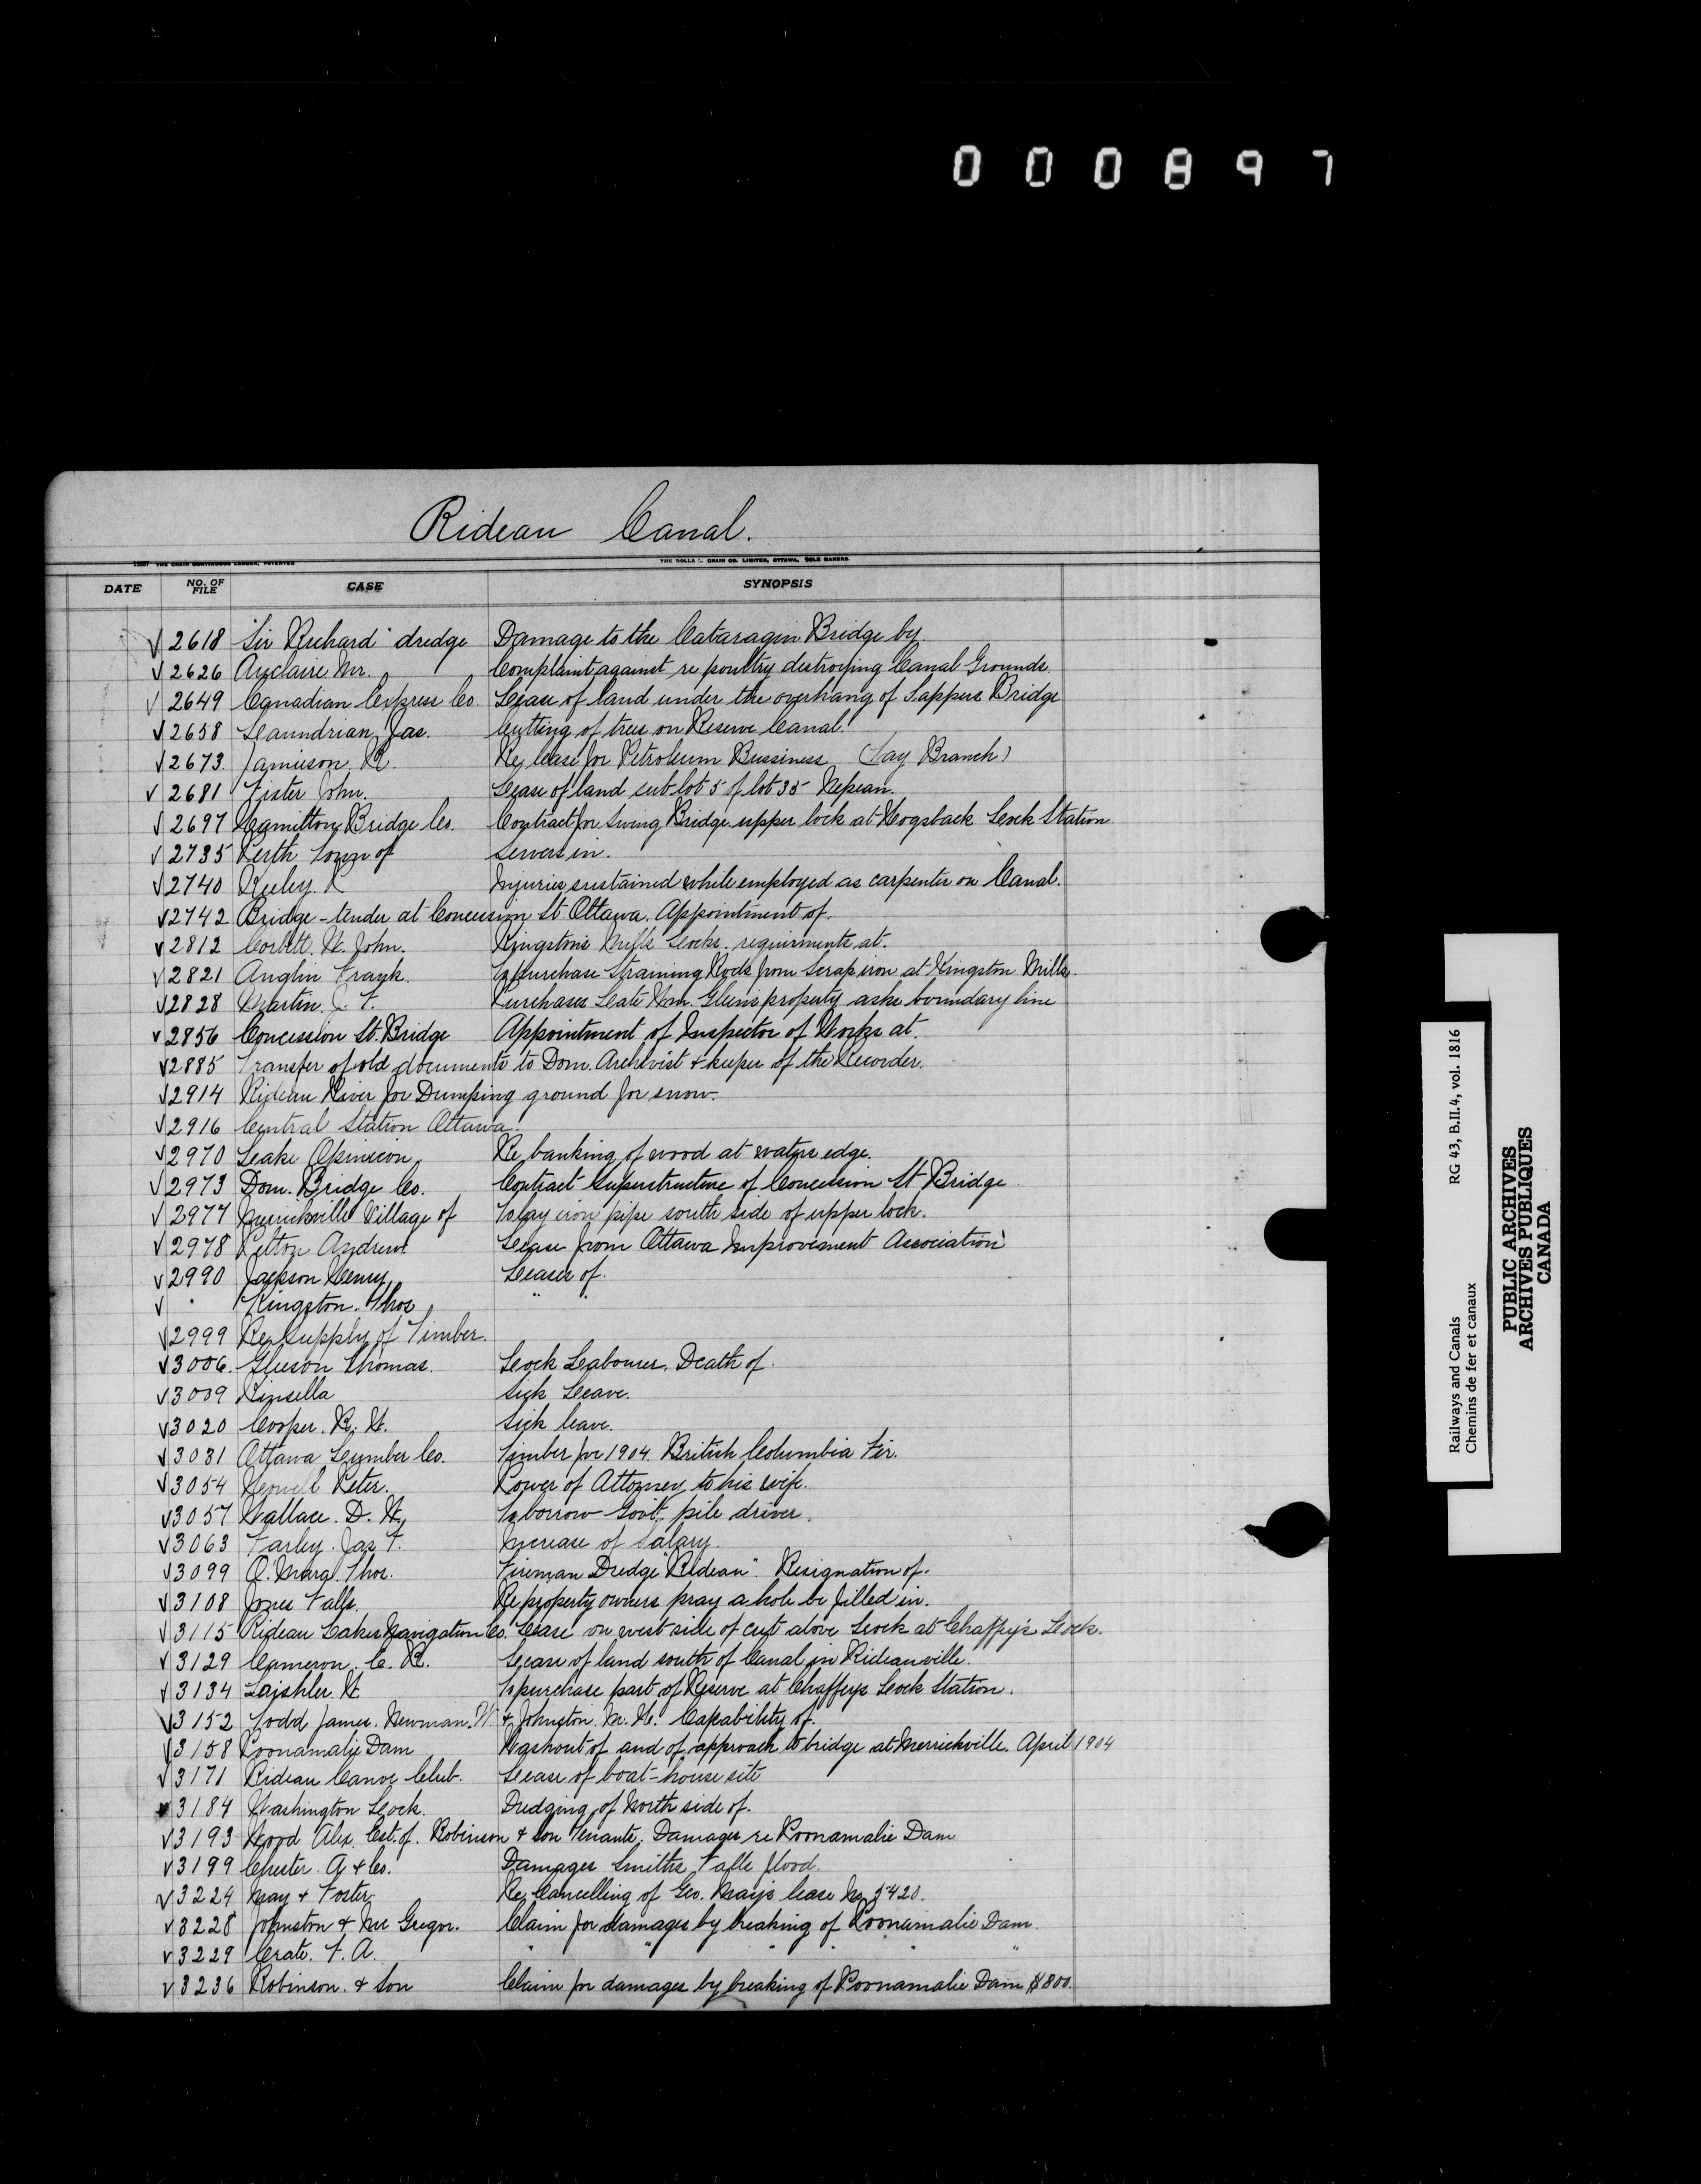 000897
Rideau Canal.
DATE NO. OF FILE CASE SYNOPSIS
√ 2618 "Sir Richard" dredge Damage to the Cataraqui Bridge by.
√ 2626 Auclaire Mr. Complaint against re poultry destroying Canal Grounds.
√ 2649 Canadian Express Co. Lease of land under the overhang of Sappers Bridge
√ 2658 Jas. Cutting of trees on Reserve Canal.
√ 2673 Jamieson R. Re lease for Petroleum Bussiness (Tay Branch)
√ 2681 Fister John. Lease of land sub lot 5 of lot 35 Nepean.
√ 2697 Hamilton Bridge Co. Contract for Swing Bridge upper lock at Hogsback Lock Station
√ 2735 Perth Town of Sewers in.
√ 2740 Injuries sustained while employed as carpenter on Canal.
√ 2742 Bridge-tender at Concession St Ottawa. Appointment of.
√ 2812 Corbett. H. John. Kingston Mills Locks. requirments at.
√ 2821 Anglin Frank. To purchase Straining Rods from Scrap iron at Kingston Mills.
√ 2828 Martin. J. F. Purchases Late Wm. property asks boundary line
√ 2856 Concession St. Bridge Appointment of Inspector of Works at.
√ 2885 Transfer of old documents to Dom. Archivist & keeper of the Recorder.
√ 2914 Rideau River for Dumping ground for snow.
√ 2916 Central Station Ottawa.
√ 2970 Lake Opinicon. Re banking of wood at waters edge.
√ 2973 Dom. Bridge Co. Contract Superstructure of Concession St Bridge.
√ 2977 Merrickville Village of To lay iron pipe south side of upper lock.
√ 2978 Andrew Lease from Ottawa Improvement Association
√ 2990 Jackson Henry Leases of.
√ " Kingston. Thos " "
√ 2999 Re Supply of Timber.
√ 3006. Gleeson Thomas. Lock Labourer. Death of.
√ 3009 Kinsella Sick Leave.
√ 3020 Cooper. R. H. Sick leave.
√ 3031 Ottawa Lumber Co. Timber for 1904 British Columbia Fir.
√ 3054 Peter. Power of Attorney to his wife.
√ 3057 Wallace. D. H. To borrow Govt. pile driver.
√ 3063 Farley. Jas F. Increase of Salary.
√ 3099 O'Mara. Thos. Fireman Dredge "Rideau" Resignation of.
√ 3108 Jones Falls. Re property owners pray a hole be filled in.
√ 3115 Rideau Lakes Navigation Co. Lease on west side of cut above Lock at Chaffey's Locks.
√ 3129 Cameron. C. R. Lease of land south of Canal in Rideauville.
√ 3134 Laishler. H. To purchase part of Reserve at Chaffeys Lock Station.
√ 3152 Todd James. Newman. W. & Johnston. M. H. Capability of.
√ 3158 Poonamalie Dam Washout of and of approach to bridge at Merrickville. April 1904
√ 3171 Rideau Canoe Club. Lease of boat-house site
√ 3184 Washington Lock. Dredging of North side of.
√ 3193 Wood Alex Est. of. Robinson & Son Tenants. Damages re Poonamalie Dam
√ 3199 Chester. A & Co. Damages Smiths Falls flood.
√ 3224 May & Foster. Re Cancelling of Geo. May's lease No. 5420.
√ 3228 Johnston & Mc Gregor. Claim for damages by breaking of Poonamalie Dam.
√ 3229 Crate. F. A. " " " " " "
√ 3236 Robinson. & Son Claim for damages by breaking of Poonamalie Dam $800.
Railways and Canals RG 43, B.III.4, vol. 1816
Chemins de fer et canaux
PUBLIC ARCHIVES
ARCHIVES PUBLIQUES
CANADA